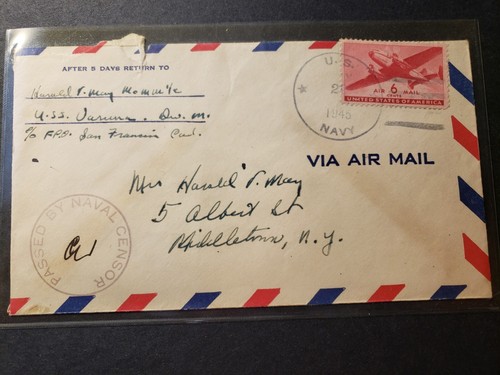 AFTER 5 DAYS RETURN TO
Harold T. May MoMM 1/c
U.S.S. Varuna. Div. M.
c/o F.P.O. San Francisco Cal.
U.S.
1945
NAVY
AIR 6 MAIL
CENTS
UNITED STATES OF AMERICA
VIA AIR MAIL
Mrs Harold T. May
5 Albert St
Middletown, N.Y.
PASSED BY NAVAL CENSOR